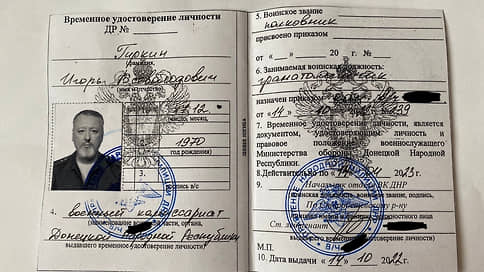 Временное удостоверение личности
ДР №
Гиркин
(фамилия)
Игорь Всеволодович
(имя и отчество)
1.
17.12
число, месяц
2.
1970
год рождения)
3.
подпись в/с
4. военный комиссариат
(наименование воинской части, органа,
Донецкой Народной Республики
выдавшего временное удостоверение личности)
5. Воинское звание
полковник
присвоено приказом
от « » 20 г. №
6. Занимаемая воинская должность:
гранатометчик
назначен приказом
от «14» 10 239
7. Временное удостоверение личности, является
документом, удостоверяющим личность и
правовое положение военнослужащего
Министерства обороны Донецкой Народной
Республики.
8.Действительно по «14» 20 23
9. Начальник отдела ВК ДНР
воинская должность, звание, подпись,
По г. р-ну
Ст. лейтенант
выдавшего временное удостоверение личности)
М.П.
10. Дата выдачи «14» 10 2022